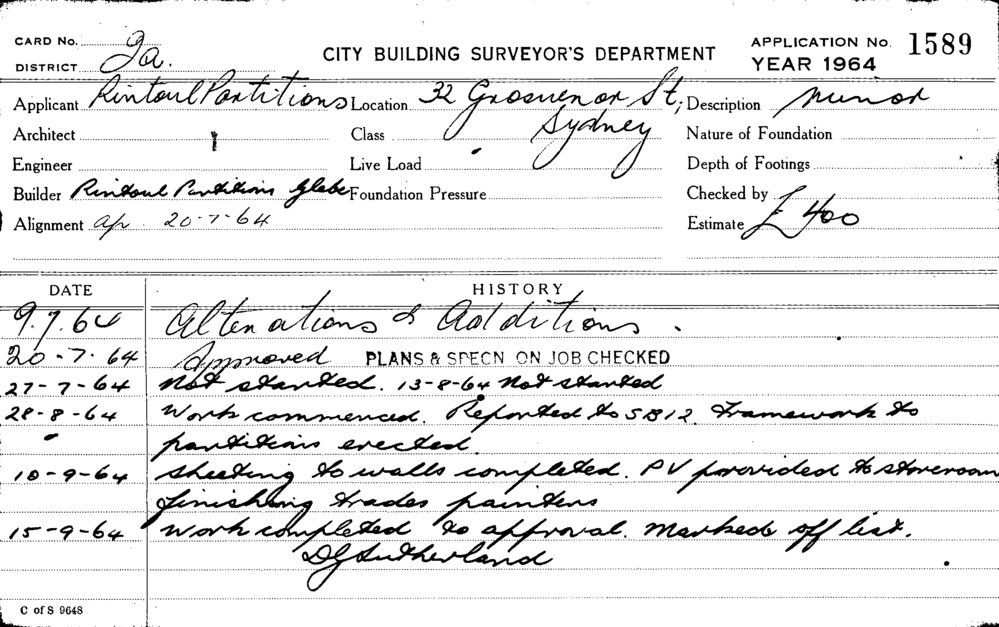 CARD No.
DISTRICT 2a.
CITY BUILDING SURVEYOR'S DEPARTMENT
APPLICATION No. 1589
YEAR 1964
Applicant Rintoul Partitions Location 32 Grosvenor St, Sydney Description Minor
Architect Class Nature of Foundation
Engineer Live Load Depth of Footings
Builder Rintoul Partitions Glebe Foundation Pressure Checked by
Alignment ap. 20-7-64 Estimate £400
DATE HISTORY
9.7.64 Alterations & Additions.
20-7-64 Approved PLANS & SPECN ON JOB CHECKED
27-7-64 Not started. 13-8-64 Not started
28-8-64 Work commenced. Reported to SB12. Framework to
partitions erected.
10-9-64 Sheeting to walls completed. PV provided to storeroom
finishing trades painters
15-9-64 Work completed to approval. Marked off list.
DG Sutherland
C of S 9648